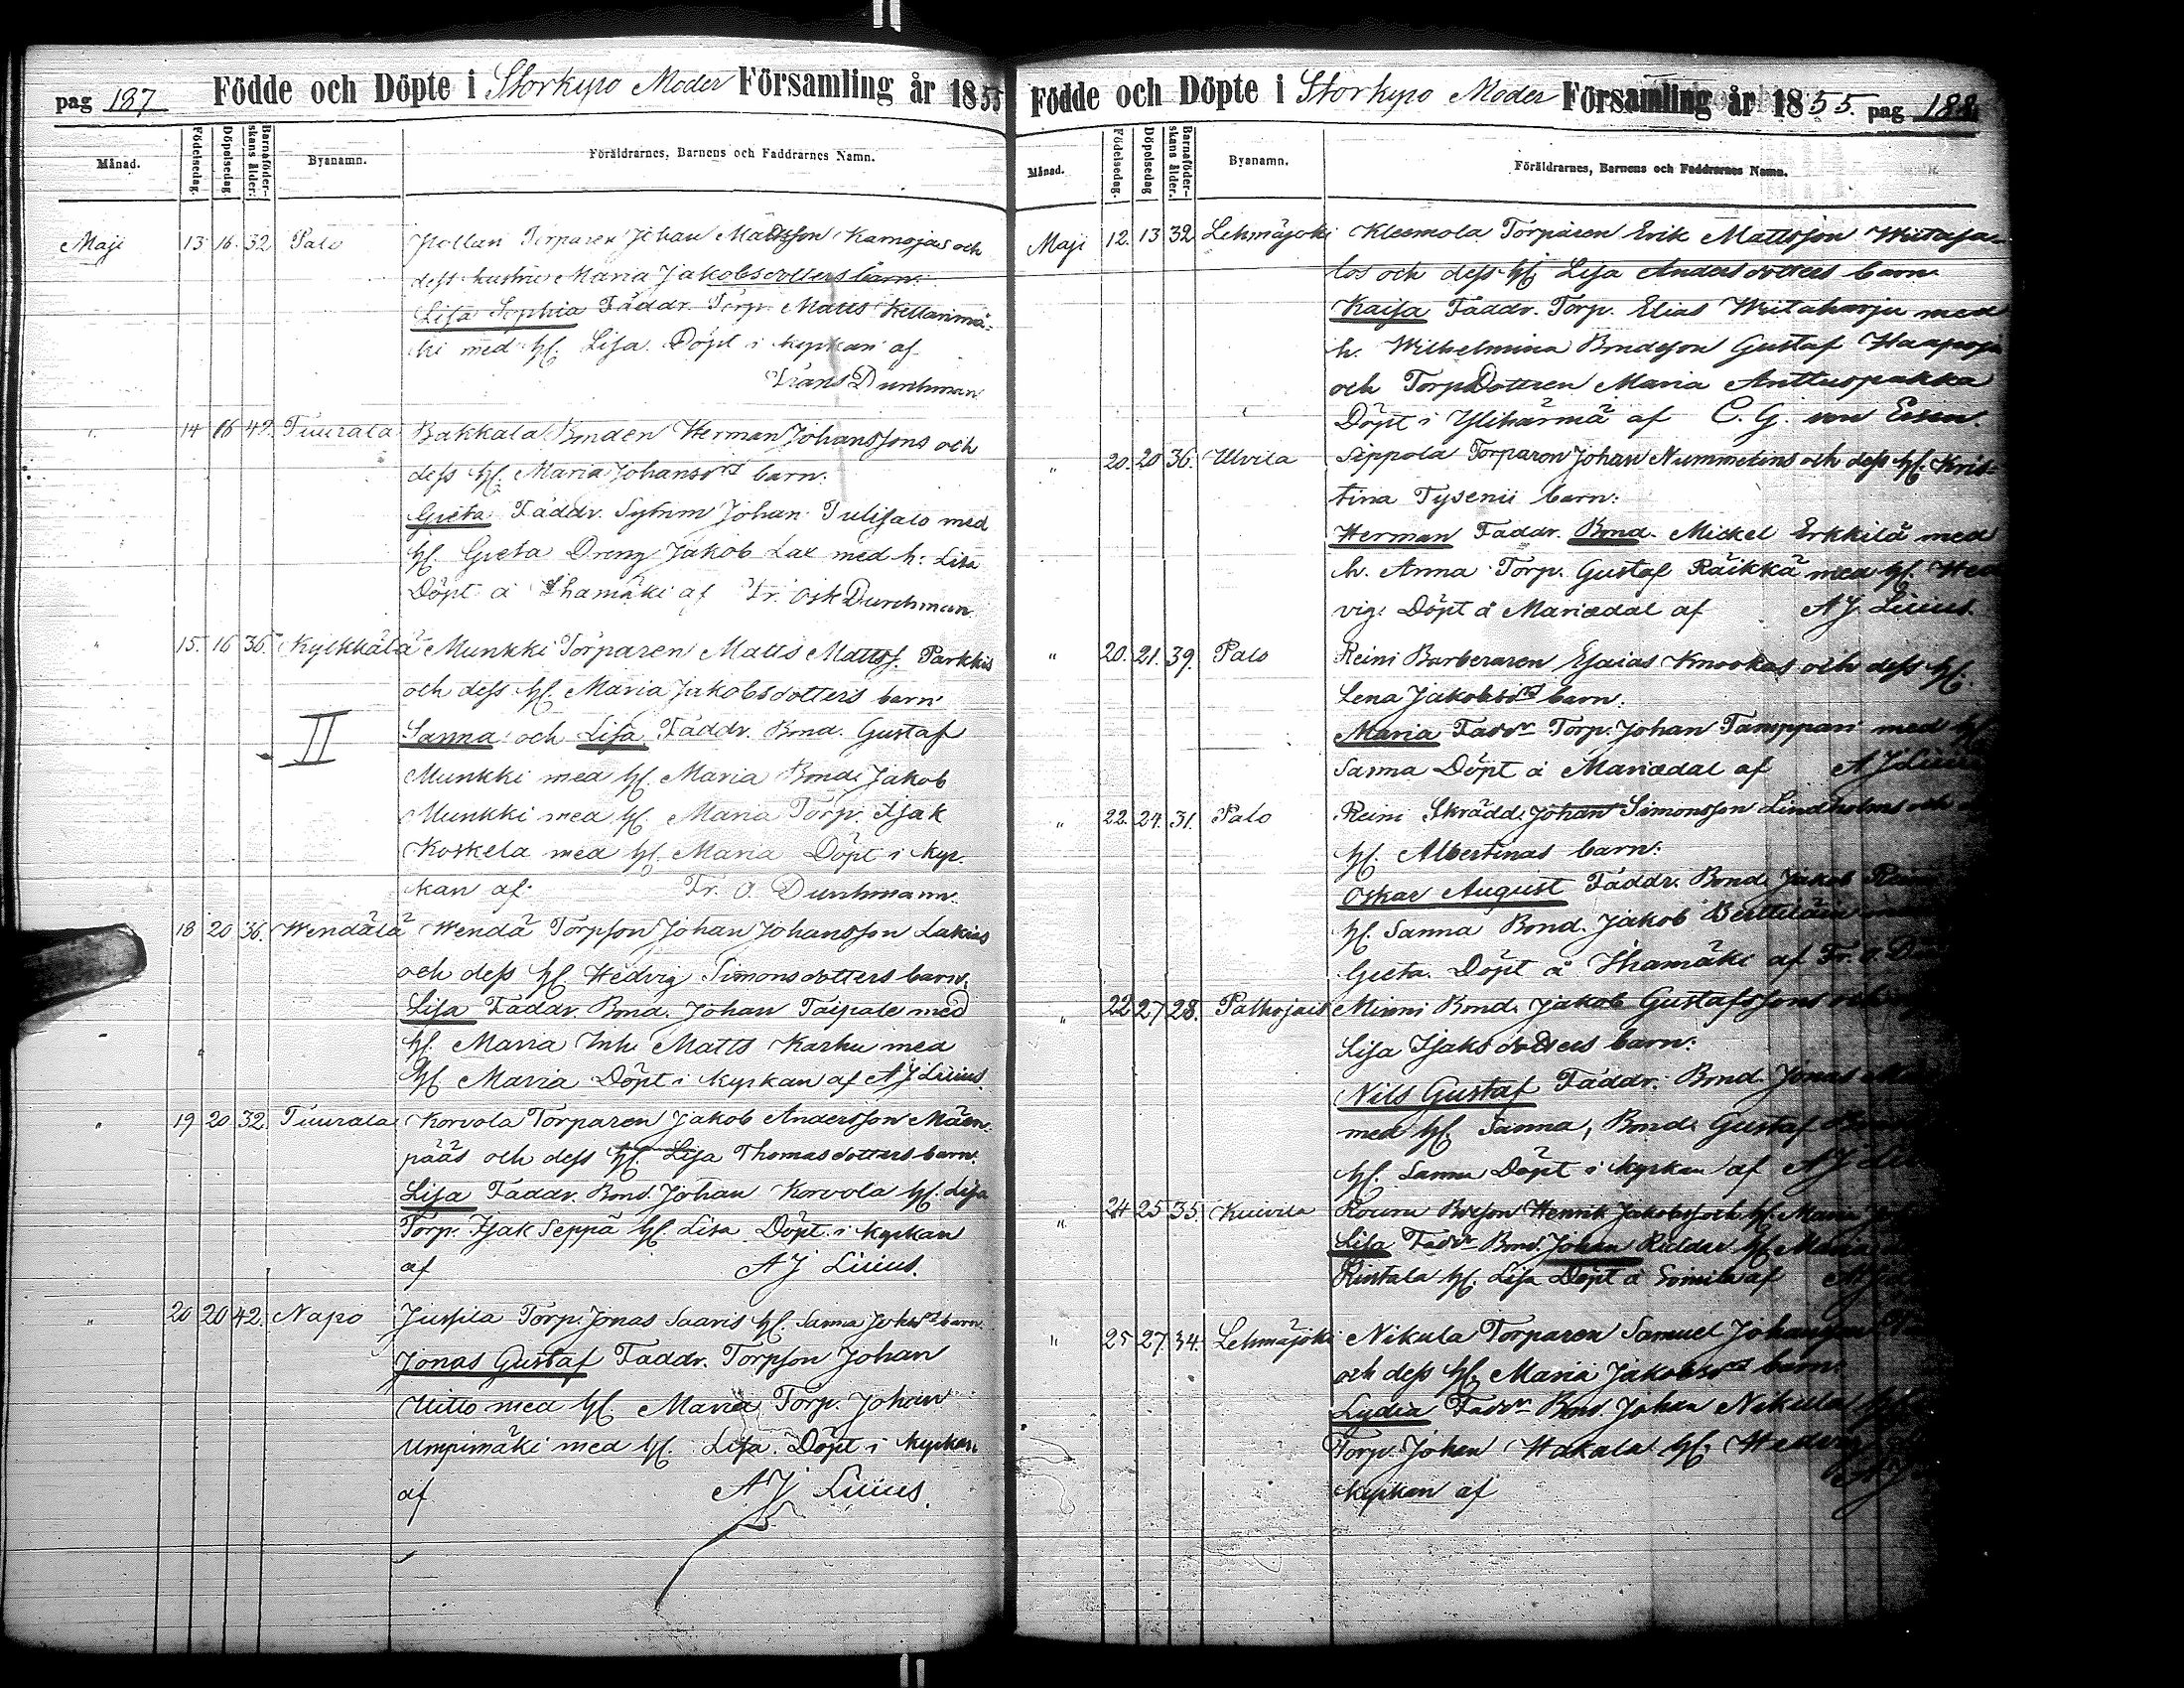 pag 187 Födde och Döpte i Storkyro Moder Församling år 1855
Månad. Födelsedag. Döpelsedag Barnaföderskans ålder. Byanamn. Föräldrarnes, Barnens och Faddrarnes Namn.
Maji 13 16 32 Palo Torparen Johan Mattsson Kamojas och
dess hustru Maria Jakobsdotters barn:
Lisa Sophia Faddr. Torp. Matts Kellarimä-
ki med H. Lisa. Döpt i kyrkan af
Frans Durchman
" 14 16 42. Tuurala Bakkala Bonden Herman Johanssons och
dess H. Maria Johansdrs barn.
Greta Faddr. Sytnm Johan Tulisalo med
H. Greta Dreng Jakob Lax med h. Lisa
Döpt å Ihamäki af Fr. Osk Durchman.
" 15. 16 36. Kylkkälä Munkki Torparen Matts Matts. Parkkis
och dess H. Maria Jakobsdotters barn
II Sanna och Lisa Faddr. Bond. Gustaf
Munkki med H. Maria Bond. Jakob
Munkki med H. Maria Torp. Isak
Koskela med H. Maria Döpt i kyr-
kan af Fr. O. Durchmann.
18 20 36. Wendälä Wendä Torpson Johan Johansson Lakias
och dess H. Hedvig Simonsdotters barn,
Lisa Faddr. Bond. Johan Taipale med
H. Maria Inh. Matts Karhu med
H. Maria Döpt i kyrkan af A J Liiius.
" 19 20 32 Tuurala Korvola Torparen Jakob Andersson Mäen-
pääs och dess H. Lisa Thomasdotters barn.
Lisa Faddr. Bond. Johan Korvola H. Lisa
Torp. Isak Seppä H. Lisa Döpt i kyrkan
af A J Liiius.
" 20 20 42. Napo Jussila Torp. Jonas Saaris H. Sanna Johsdrs barn.
Jonas Gustaf Faddr. Torpson Johan
Uitto med H. Maria Torp. Johan
Umpimäki med H. Lisa. Döpt i kyrkan
af A J Liiius.
Födde och Döpte i Storkyro Moder Församling år 1855. pag 188
Månad. Födelsedag. Döpelsedag Barnaföderskans ålder. Byanamn. Föräldrarnes, Barnens och Faddrarnes Namn.
Maji 12. 13 32 Lehmäjoki Kleemola Torparen Erik Mattsson Wiitasa-
los och dess H. Lisa Andersdotters barn
Kaisa Faddr. Torp. Elias Wiitaharju med
h. Wilhelmina Bondeson Gustaf Haapoja
och TorpDottren Maria Anttuspakka
Döpt i Ylihärmä af C. G. von Essen.
" 20. 20 36. Ulvila Sippola Torparen Johan Nummelins och dess H. Kris-
tina Tysenii barn:
Herman Faddr. Bond. Mickel Erkkilä med
h. Anna Torp. Gustaf Räikkä med H. Hed
vig. Döpt å Mariedal af A J. Liiius.
" 20. 21. 39. Palo Reini Barberaren Esaias Knookas och dess H.
Lena Jakobsdrs barn.
Maria Faddr Torp. Johan Tamppari med H
Sanna Döpt å Mariedal af A J Liiius
" 22. 24. 31. Palo Reini Skrädd. Johan Simonsson Lindholms och
H. Albertinas barn:
Oskar August Faddr. Bond. Jakob
H. Sanna Bond. Jakob Berttilä
Greta. Döpt å Ihamäki af Fr. O. D
" 22 27 28. Palhojais Minni Bond. Jakob Gustafssons och
Lisa Isaksdotters barn:
Nils Gustaf Faddr. Bond. Jonas
med H. Sanna, Bond. Gustaf
H. Sanna Döpt i kyrkan af A J
" 24 25 35. Kuivila Bdeson Henrik Jakobss och H. Maria
Lisa Faddr Bond. Johan Riddar H. Maria
Rintala H. Lisa Döpt å af
" 25 27. 34. Lehmäjoki Nikula Torparen Samuel Johansson
och dess H. Maria Jakobsdrs barn.
Lydia Faddr Bond. Johan Nikula H.
Torp. Johan Hakala H. Hedvig
kyrkan af A J